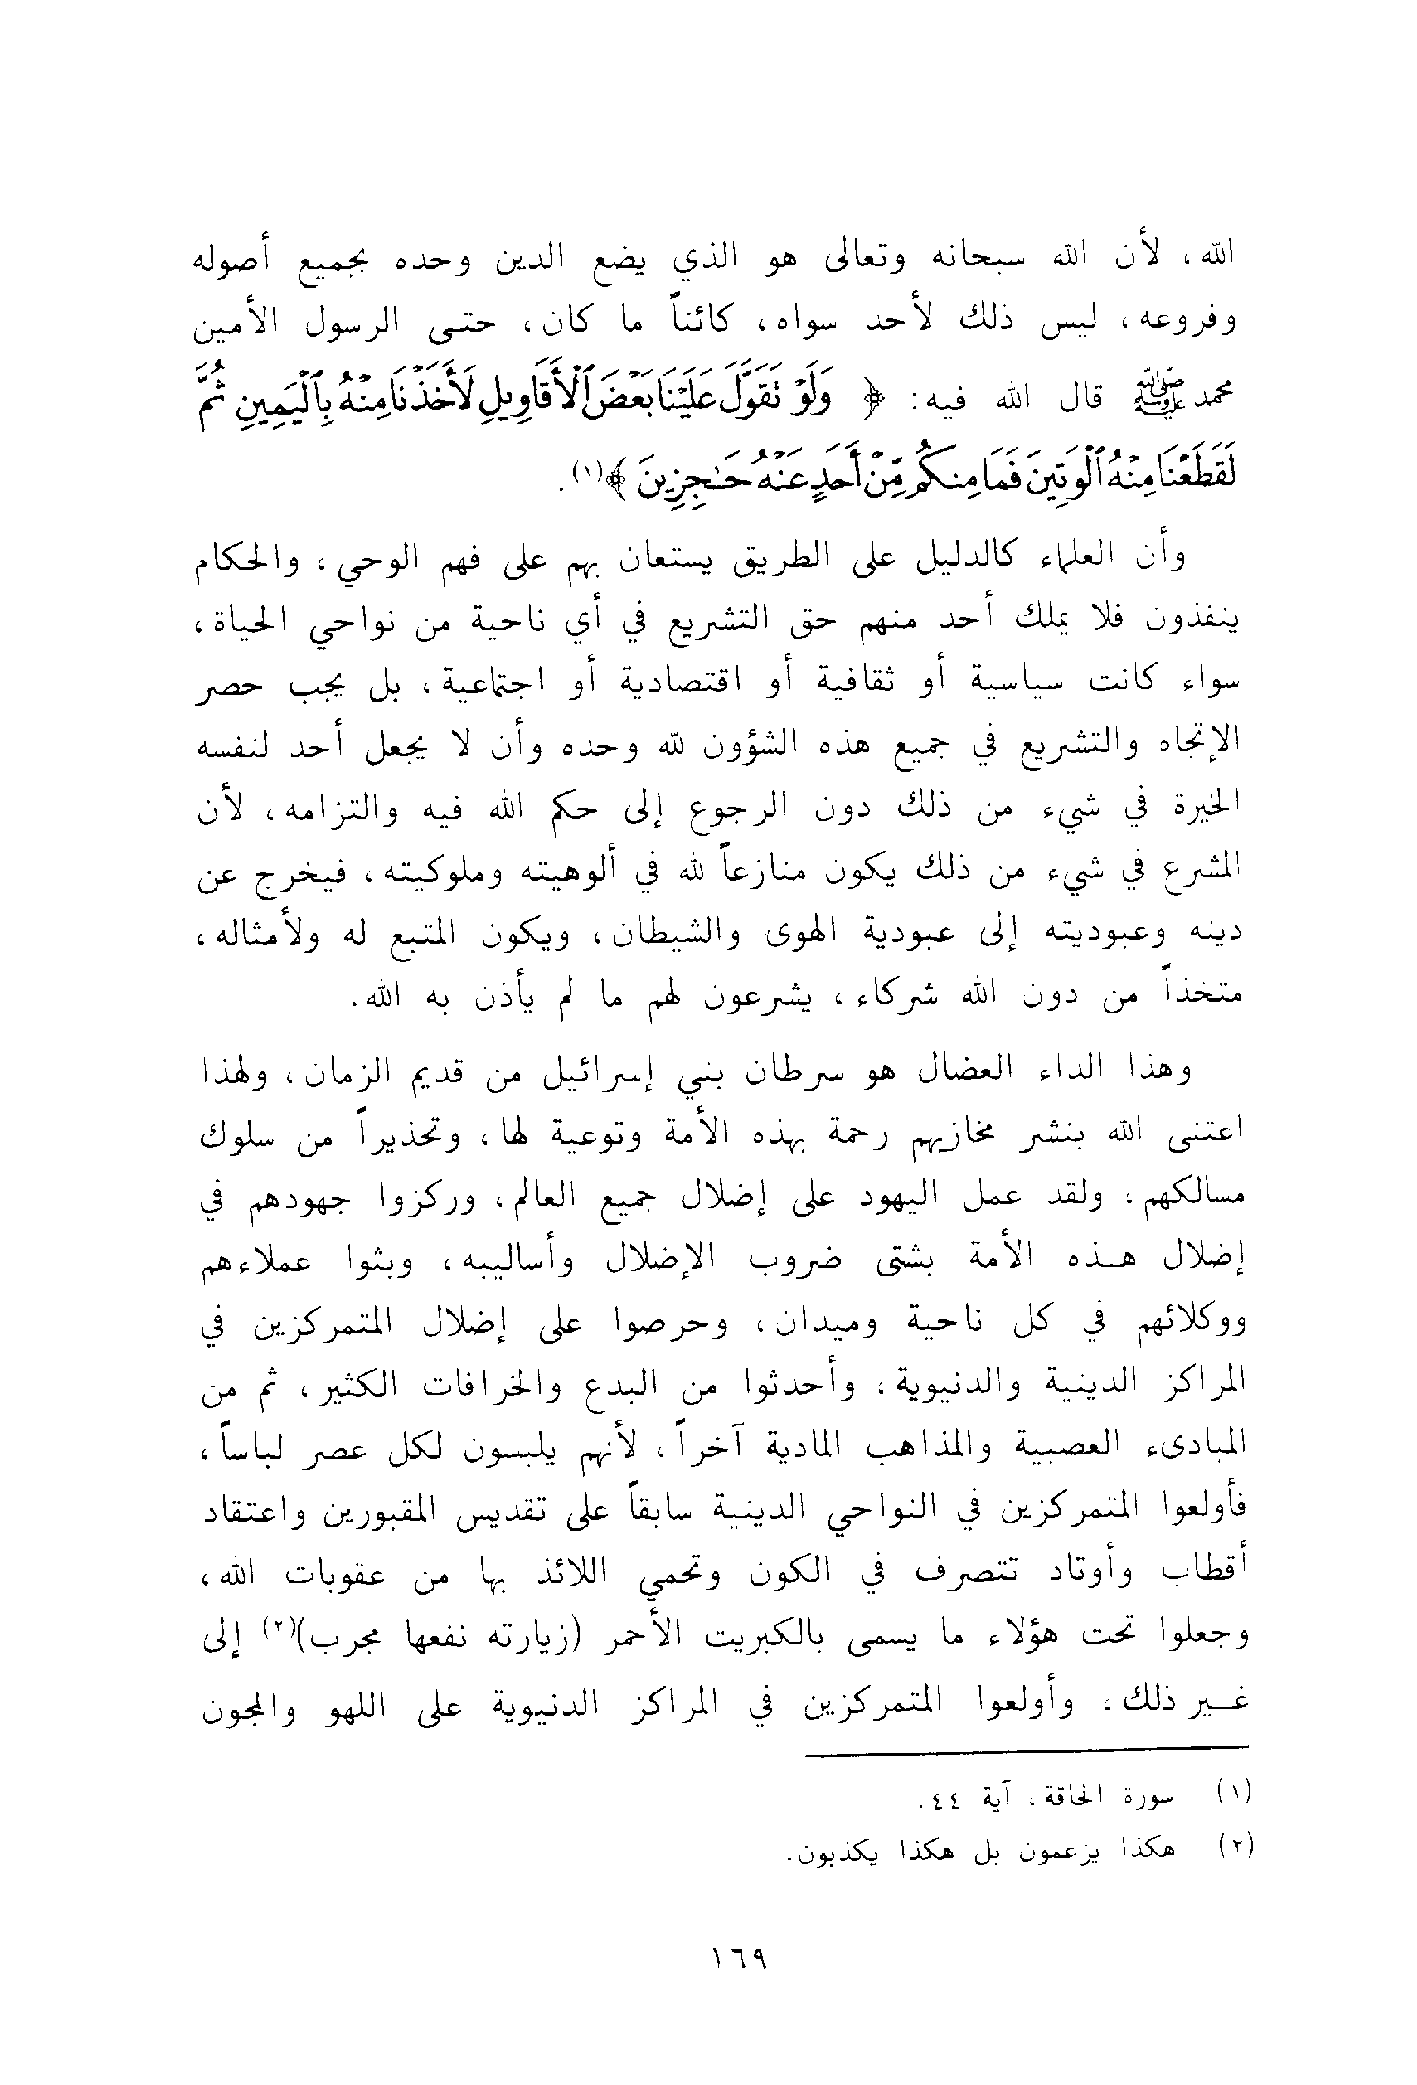 الله، لأن الله سبحانه وتعالى هو الذي يضع الدين وحده بجميع أصوله
وفروعه، ليس ذلك لأحد سواه، كائناً ما كان، حتى الرسول الأمين
محمد ﷺ قال الله فيه: ﴿ وَلَوْ تَقَوَّلَ عَلَيْنَا بَعْضَ ٱلْأَقَاوِيلِ لَأَخَذْنَا مِنْهُ بِٱلْيَمِينِ ثُمَّ
لَقَطَعْنَا مِنْهُ ٱلْوَتِينَ فَمَا مِنكُم مِّنْ أَحَدٍ عَنْهُ حَٰجِزِينَ ﴾(١).
وأن العلماء كالدليل على الطريق يستعان بهم على فهم الوحي، والحكام
ينفذون فلا يملك أحد منهم حق التشريع في أي ناحية من نواحي الحياة،
سواء كانت سياسية أو ثقافية أو اقتصادية أو اجتماعية، بل يجب حصر
الإتجاه والتشريع في جميع هذه الشؤون لله وحده وأن لا يجعل أحد لنفسه
الخيرة في شيء من ذلك دون الرجوع إلى حكم الله فيه والتزامه، لأن
المشرع في شيء من ذلك يكون منازعاً لله في ألوهيته وملوكيته، فيخرج عن
دينه وعبوديته إلى عبودية الهوى والشيطان، ويكون المتبع له ولأمثاله،
متخذاً من دون الله شركاء، يشرعون لهم ما لم يأذن به الله.
وهذا الداء العضال هو سرطان بني إسرائيل من قديم الزمان، ولهذا
اعتنى الله بنشر مخازيهم رحمة بهذه الأمة وتوعية لها، وتحذيراً من سلوك
مسالكهم، ولقد عمل اليهود على إضلال جميع العالم، وركزوا جهودهم في
إضلال هذه الأمة بشتى ضروب الإضلال وأساليبه، وبثوا عملاءهم
ووكلائهم في كل ناحية وميدان، وحرصوا على إضلال المتمركزين في
المراكز الدينية والدنيوية، وأحدثوا من البدع والخرافات الكثير، ثم من
المبادىء العصبية والمذاهب المادية آخراً، لأنهم يلبسون لكل عصر لباساً،
فأولعوا المتمركزين في النواحي الدينية سابقاً على تقديس المقبورين واعتقاد
أقطاب وأوتاد تتصرف في الكون وتحمي اللائذ بها من عقوبات الله،
وجعلوا تحت هؤلاء ما يسمى بالكبريت الأحمر (زيارته نفعها مجرب)(٢) إلى
غير ذلك، وأولعوا المتمركزين في المراكز الدنيوية على اللهو والمجون
(١) سورة الحاقة، آية ٤٤.
(٢) هكذا يزعمون بل هكذا يكذبون.
١٦٩